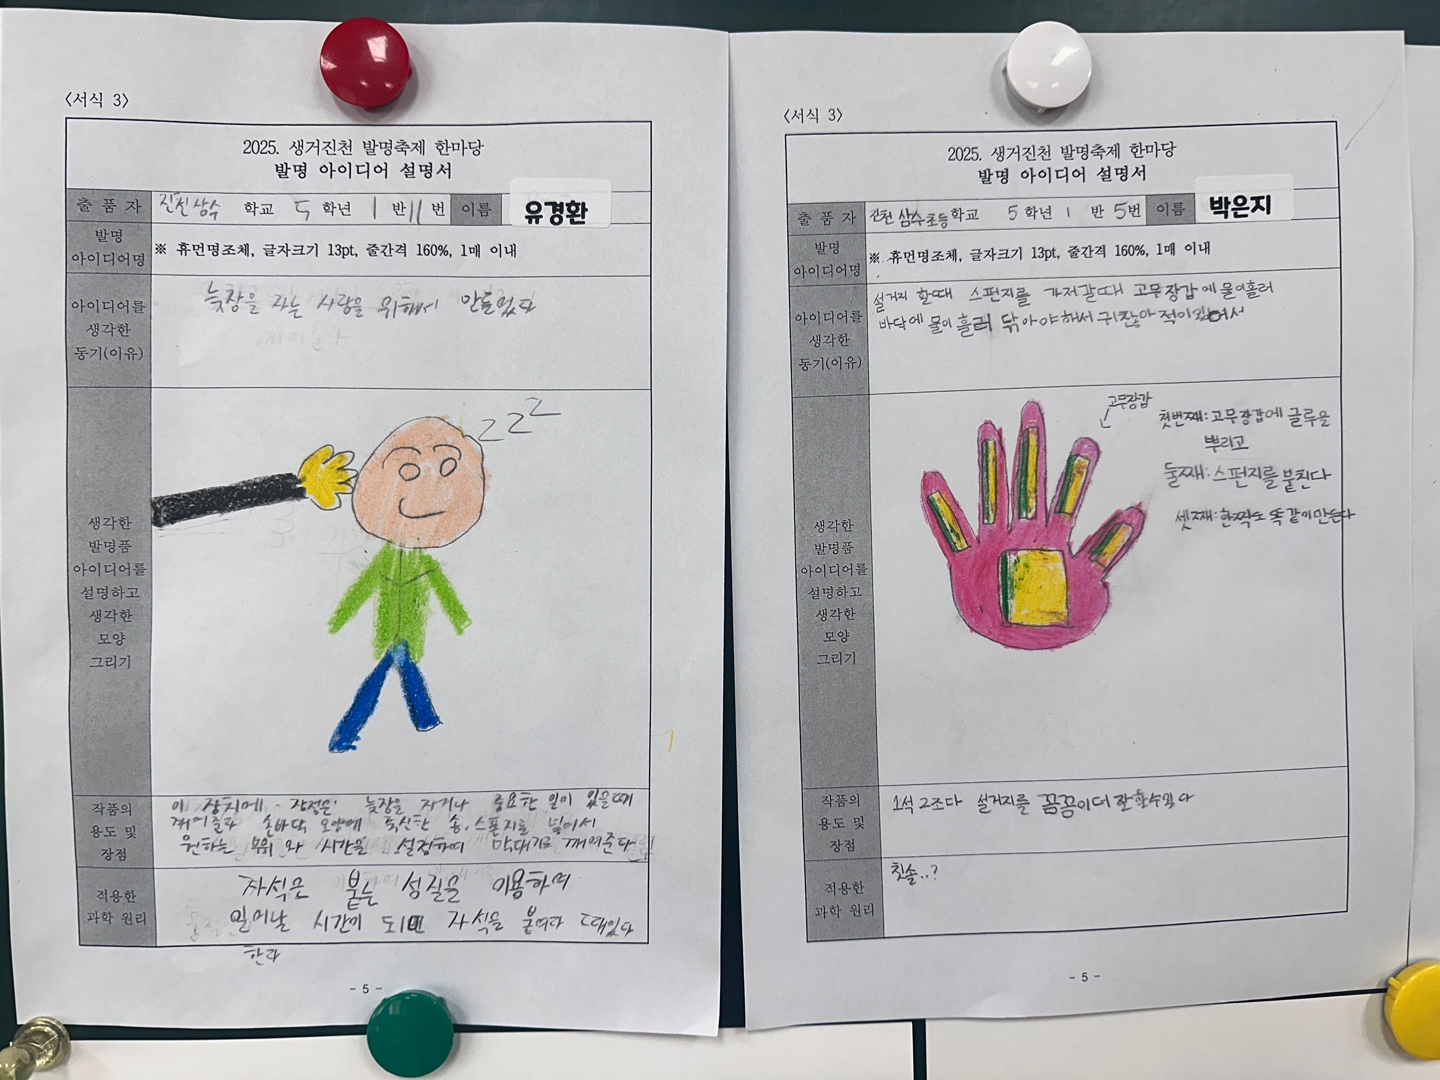 <서식 3>
2025. 생거진천 발명축제 한마당
발명 아이디어 설명서
출 품 자 진천상수 학교 5 학년 1 반 11 번 이름 유경환
발명
아이디어명
※ 휴먼명조체, 글자크기 13pt, 줄간격 160%, 1매 이내
아이디어를
생각한
동기(이유)
늦장을 자는 사람을 위해서 만들었다
생각한
발명품
아이디어를
설명하고
생각한
모양
그리기
zzz
작품의
용도 및
장점
이 장치에 장점은 늦장을 자거나 중요한 일이 있을때
깨어줄라 손바닥 모양에 푹신한 솜, 스폰지를 넣어서
원하는 부위 와 시간을 설정하여 막대기로 깨여준다
적용한
과학 원리
자석은 붙는 성질을 이용하며
일어날 시간이 되면 자석을 붙여다 때었다
한다
- 5 -
<서식 3>
2025. 생거진천 발명축제 한마당
발명 아이디어 설명서
출 품 자 진천 삼수초등 학교 5 학년 1 반 5 번 이름 박은지
발명
아이디어명
※ 휴먼명조체, 글자크기 13pt, 줄간격 160%, 1매 이내
아이디어를
생각한
동기(이유)
설거지 할때 스펀지를 가저갈때 고무장갑에 물이흘러
바닥에 물이 흘러 닦아야해서 귀찮아 적이있어서
생각한
발명품
아이디어를
설명하고
생각한
모양
그리기
고무장갑
첫번째: 고무장갑에 글루을
뿌리고
둘째: 스펀지를 붙친다
셋째: 한짝도 똑같이만든다
작품의
용도 및
장점
1석 2조다 설거지를 꼼꼼이더 잘할수있다
적용한
과학 원리
칫솔..?
- 5 -